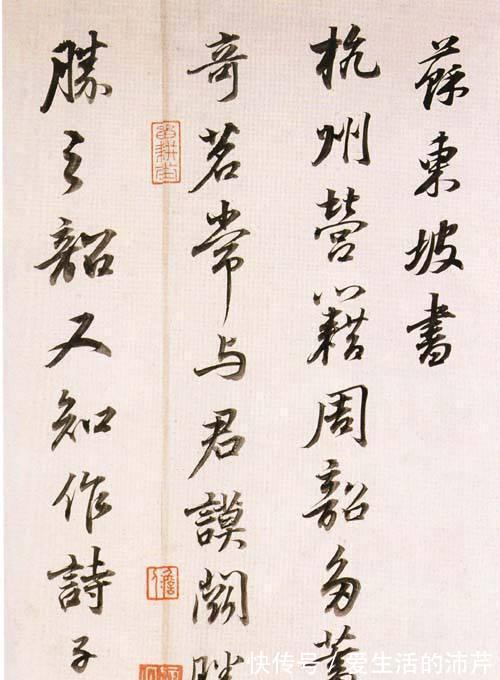 蘇東坡書
杭州營籍周韶多蓄
奇茗常与君謨闘勝
勝之韶又知作詩子
快传号/爱生活的沛芹